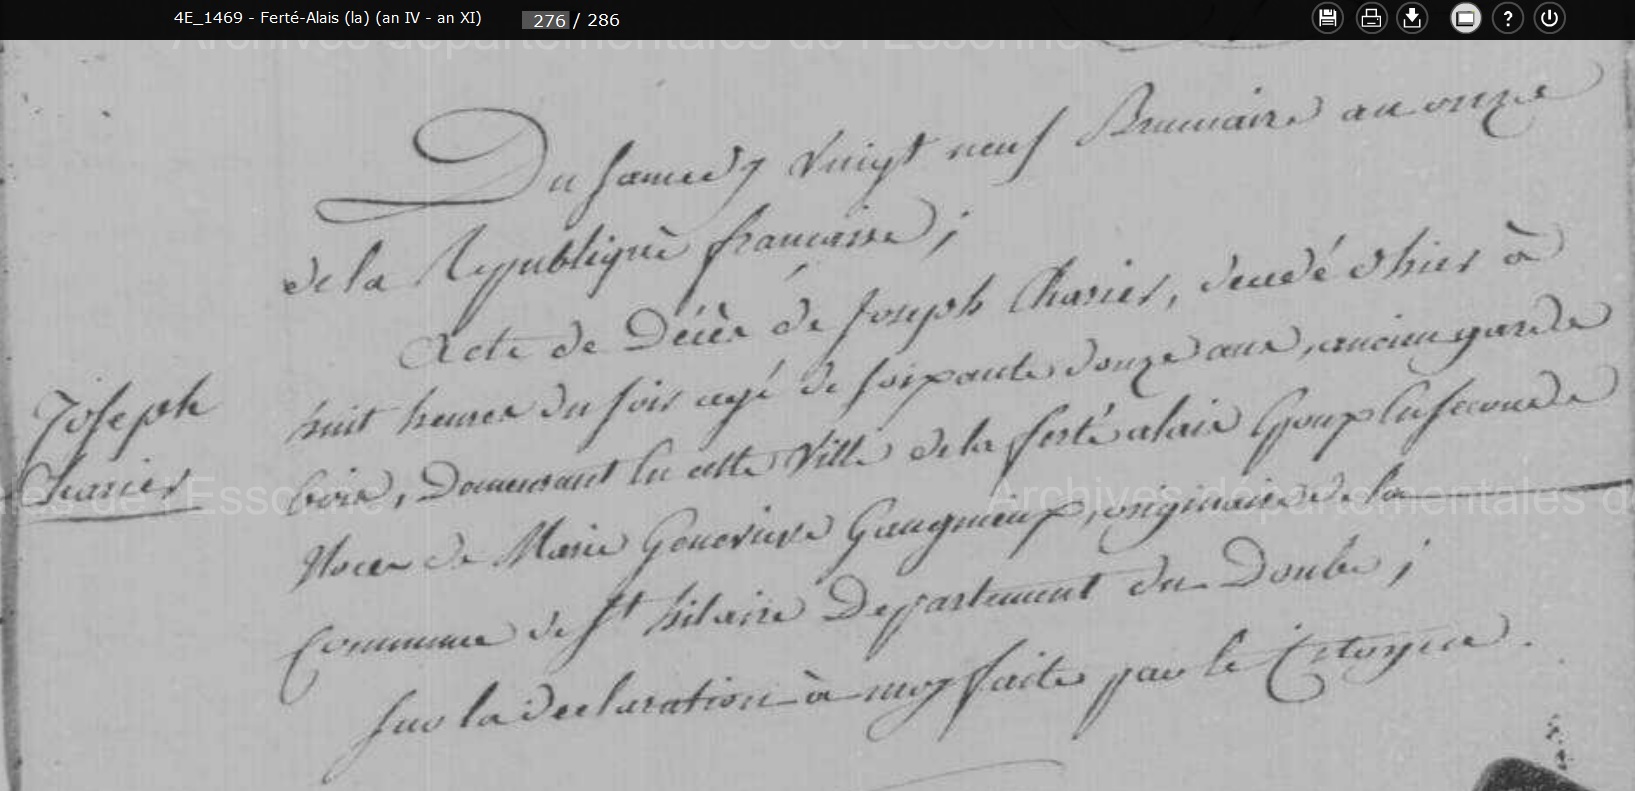 4E_1469 - Ferté-Alais (la) (an IV - an XI) 276 / 286
Archives départementales de l'Essonne
Du samedy vingt neuf Brumaire an onze
de la Republique francaise ;
Acte de Décès de Joseph Charier, decedé d'hier à
huit heures du soir agé de soixante douze ans, ancien garde
Joseph
bois, Demeurant en cette Ville de la ferté alais Epoux en seconde
Charier
Noces de Marie Genevieve Gaugneux, originaire de la
Commune de St hilaire Departement du Doubs ;
sur la declaration à moy faite par le Citoyen.
ales de l'Essonne
Archives départementales d